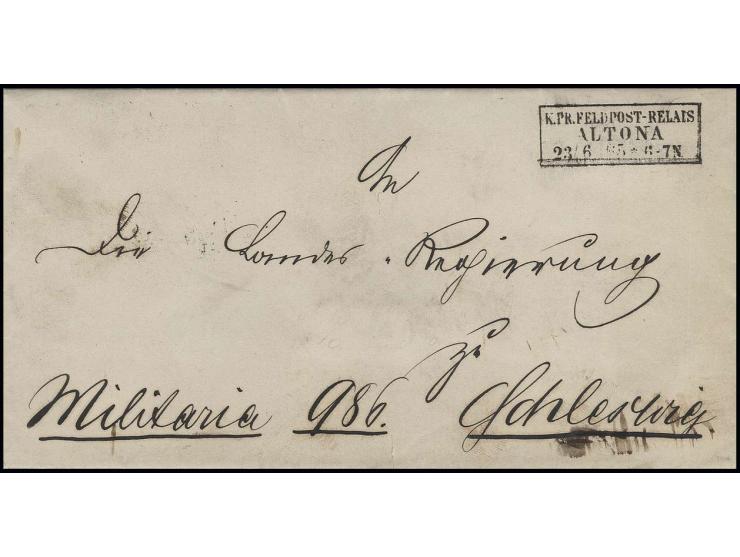 K.PR.FELDPOST-RELAIS
ALTONA
23/6 65 * 6-7N
An
Die Landes-Regierung
zu
Militaria 986. Schleswig